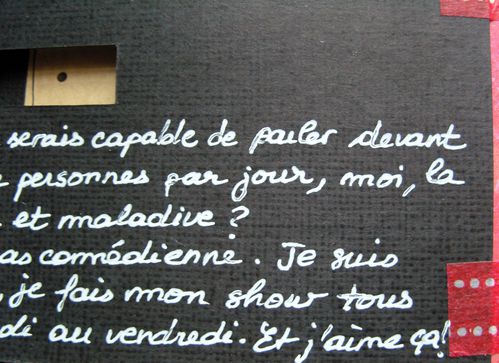 serais capable de parler devant
personnes par jour, moi, la
et maladive ?
as comédienne. Je suis
, je fais mon show tous
di au vendredi. Et j'aime ça!